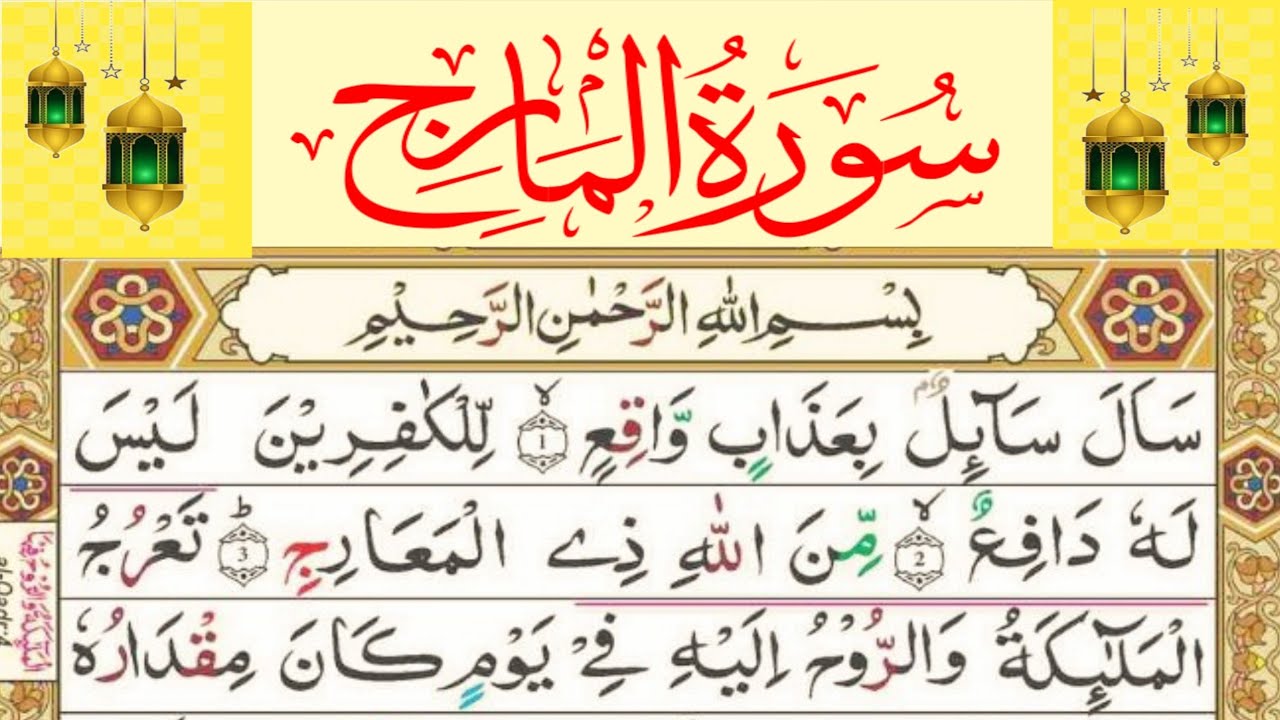 سُورَةُ المَارِجِ
بِسْمِ اللهِ الرَّحْمٰنِ الرَّحِيْمِ
سَاَلَ سَآئِلٌۢ بِعَذَابٍ وَّاقِعٍ ۙ﴿1﴾ لِّلْكٰفِرِيْنَ لَيْسَ
لَهٗ دَافِعٌ ۙ﴿2﴾ مِّنَ اللّٰهِ ذِي الْمَعَارِجِ ؕ﴿3﴾ تَعْرُجُ
الْمَلٰٓئِكَةُ وَالرُّوْحُ اِلَيْهِ فِيْ يَوْمٍ كَانَ مِقْدَارُهٗ
alQadr:4